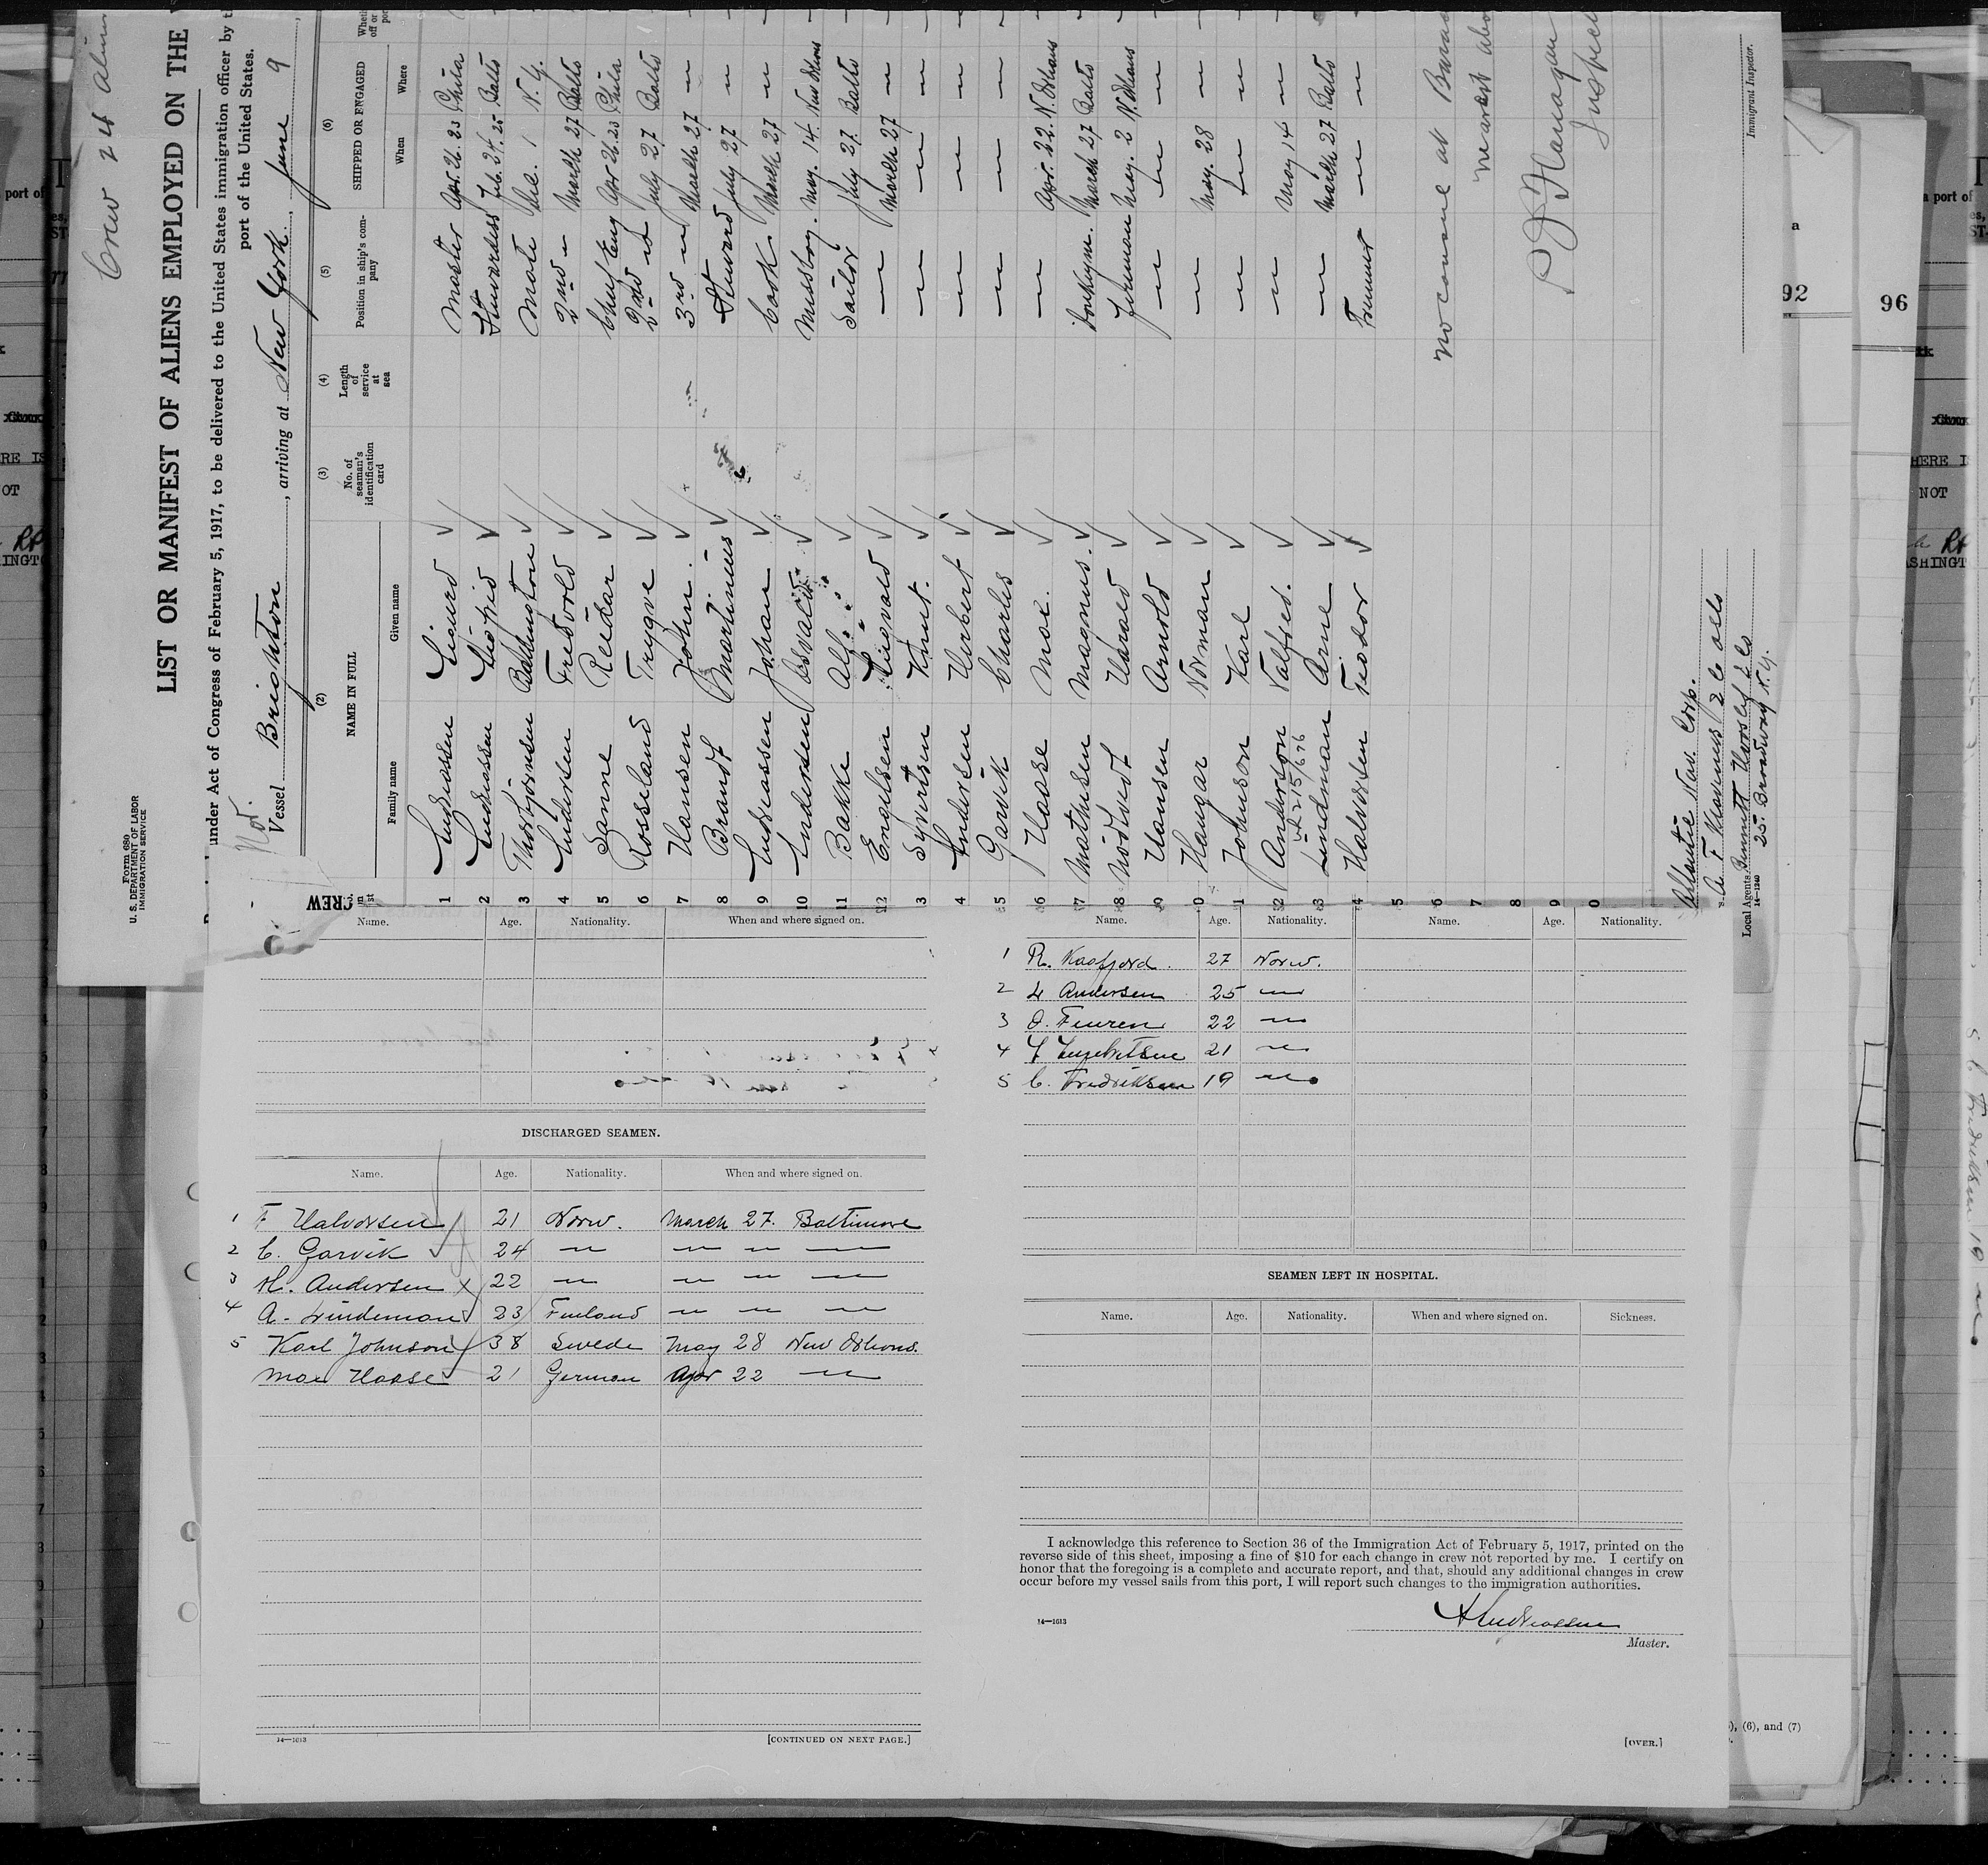 Crew 24 Alien
LIST OR MANIFEST OF ALIENS EMPLOYED ON THE
under Act of Congress of February 5, 1917, to be delivered to the United States immigration officer by
port of the United States.
Form 680
U. S. DEPARTMENT OF LABOR
IMMIGRATION SERVICE
Nor.
Vessel Brighton, arriving at New York, June 9
(2) (3) (4) (5) (6)
NAME IN FULL No. of seaman's identification card Length of service at sea Position in ship's company SHIPPED OR ENGAGED
Family name Given name When Where
CREW
1 Andreassen Sigurd Master Apr. 26. 23 Phila
2 Andreassen Stewardess Feb. 24. 25 Balto
3 Thorbjörnsen Mate 1 N. Y.
4 Andersen 2nd — March 27 Balto
5 Sanne Reidar Chief Eng Apr 26. 23 Phila
6 Rosseland Trygve 2nd — July 27 Balto
7 Hansen John. 3rd — March 27 —
8 Brandt Martinius Steward July 27 —
9 Andreassen Johan Cook March 27 —
10 Andersen Osvald Messboy. May. 14. New Orleans
11 Bakke Alf Sailor July 27. Balto
12 Engelsen Lingvald — March 27 —
3 Syvertsen Knut. — — —
4 Andersen Herbert — — —
5 Garvik Charles — — —
6 Haase Max. — Apr. 22. N. Orleans
7 Mathisen Magnus. Donkeym. March 27 Balto
8 Nödtvedt Harald Fireman May. 2 N. Orleans
9 Hansen Arnold — — —
0 Haugar Norman — May. 28 —
1 Johnson Karl — — —
2 Anderson Valfred. — May 14 —
3 Lindman Arne — March 27 Balto
4 Halvorsen Fredor Trimmer — —
5
6
7
8
9
0
no consul at
nearest
P J Flanagan
Inspec
Immigrant Inspector.
Atlantic Nav. Corp.
A. F. Klaveness & Co
Local Agents Bennett Hvoslef & Co
25. Broadway N. Y.
14—1240
Name. Age. Nationality. When and where signed on.
DISCHARGED SEAMEN.
Name. Age. Nationality. When and where signed on.
1 F Halvorsen 21 Norw. March 27. Baltimore
2 C. Garvik 24 — — — —
3 H. Andersen 22 — — — —
4 A. Lindeman 23 Finland — — —
5 Karl Johnson 38 Swede May 28 New Orleans.
Max Haase 21 German Apr 22 —
14—1613
[CONTINUED ON NEXT PAGE.]
Name. Age. Nationality. Name. Age. Nationality.
1 R. Kaafjord. 27 Norw.
2 Andersen 25 —
3 O. 22 —
4 21 —
5 C. Fredriksen 19 —
SEAMEN LEFT IN HOSPITAL.
Name. Age. Nationality. When and where signed on. Sickness.
I acknowledge this reference to Section 36 of the Immigration Act of February 5, 1917, printed on the
reverse side of this sheet, imposing a fine of $10 for each change in crew not reported by me. I certify on
honor that the foregoing is a complete and accurate report, and that, should any additional changes in crew
occur before my vessel sails from this port, I will report such changes to the immigration authorities.
Andreassen
14—1613
Master.
[OVER.]
92
96
port of
a port of
HERE IS
NOT
ASHINGT
), (6), and (7)